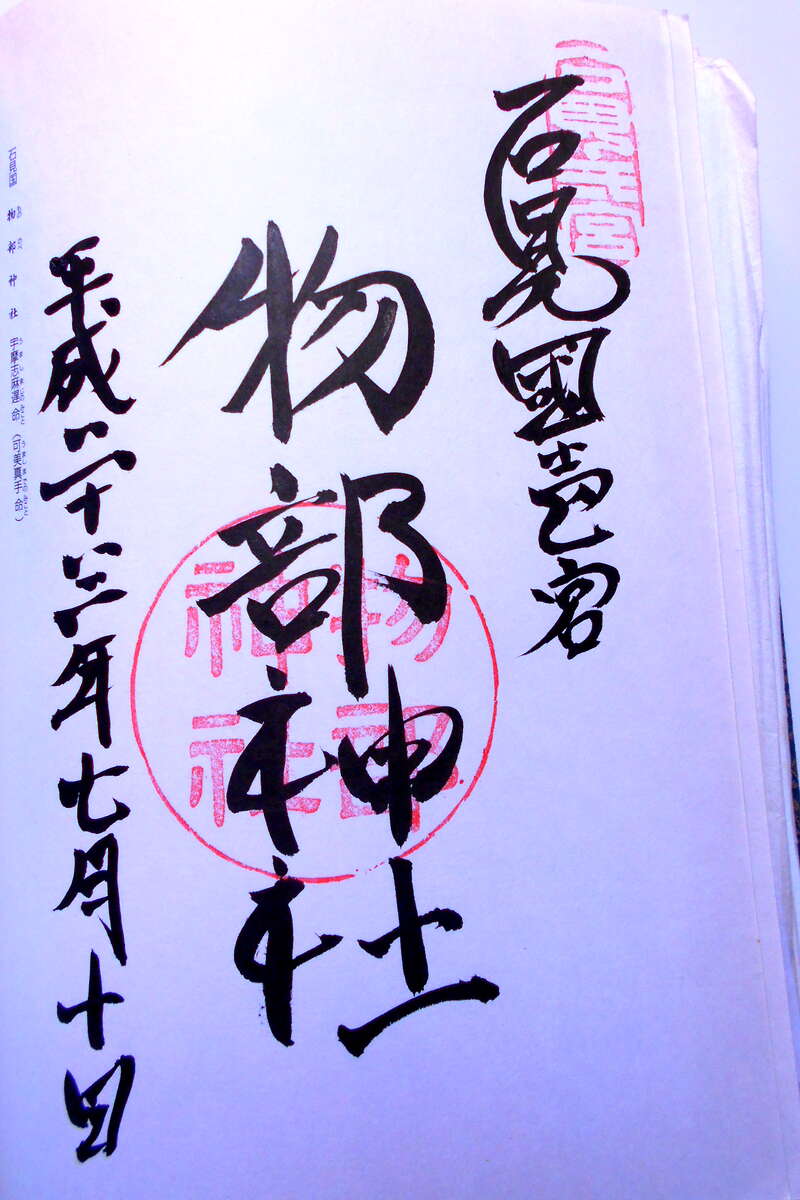 石見國壱宮
物部神社
物部神社
平成二十三年七月十日
石見国 物部神社 宇摩志麻遅命（可美真手命）